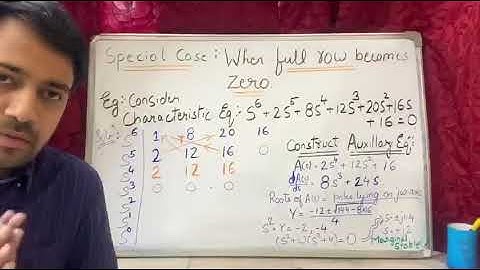 Special Case: When full row becomes
Zero.
Eg: Consider
Characteristic Eq: S⁶ + 2S⁵ + 8S⁴ + 12S³ + 20S² + 16S
+ 16 = 0
S⁶ 1 8 20 16
S⁵ 2 12 16 0
S⁴ 2 12 16
S³ 0 0 0
S²
S¹
S⁰
Construct Auxillary Eqⁿ:
A(s) = 2S⁴ + 12S² + 16
dA(s)/ds = 8S³ + 24S
Roots of A(s) = poles lying on jw axis
S² = Y = -2, -4
= 0
Marginal
Stable